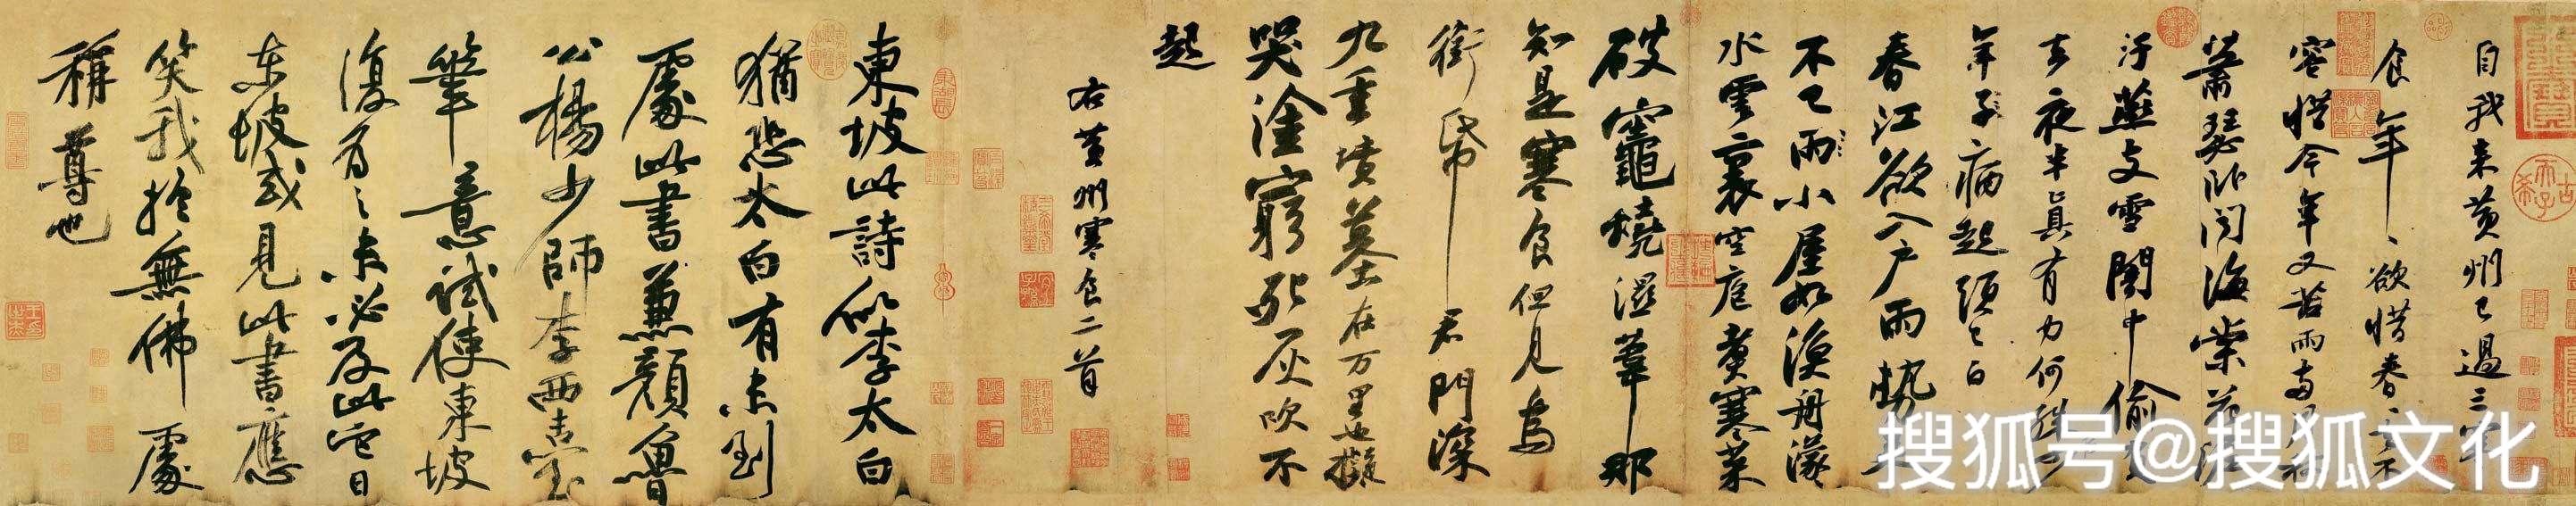 自我来黄州已過三寒
食年〻欲惜春〻去不
容惜今年又苦雨兩月秋
蕭瑟卧闻海棠花泥
汙燕支雪闇中偷負
去夜半真有力何殊少
年子病起頭已白
春江欲入户雨势来
不已雨小屋如漁舟濛〻
水雲裏空庖煑寒菜
破竈燒濕葦那
知是寒食但見烏
銜帋君門深
九重墳墓在万里也擬
哭塗窮死灰吹不
起
右黄州寒食二首
東坡此詩似李太白
猶恐太白有未到
處此書兼顔魯
公楊少師李西臺
筆意試使東坡
復為之未必及此它日
東坡或見此書應
笑我於無佛處
稱尊也
搜狐号@搜狐文化